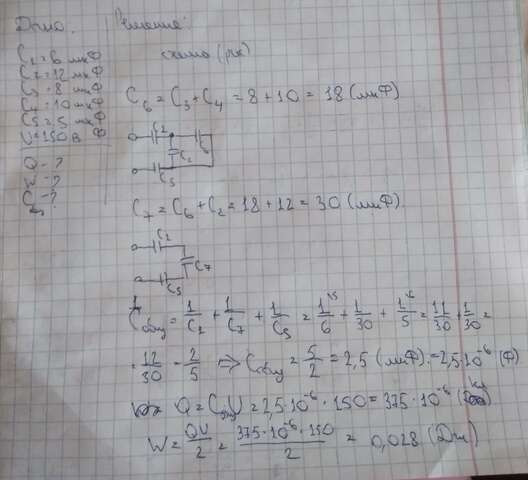 Дано: Решение:
C₁=6 мкФ
C₂=12 мкФ
C₃=8 мкФ
C₄=10 мкФ
C₅=5 мкФ
U=150 В
Q-?
W-?
C-?
схема (рис)
C₆ = C₃+C₄ = 8+10 = 18 (мкФ)
C₂
C₅
C₇ = C₆+C₂ = 18+12 = 30 (мкФ)
C₇
C₅
1/Cобщ = 1/C₁ + 1/C₇ + 1/C₅ = 1/6 + 1/30 + 1/5 = 11/30 + 1/30 =
= 12/30 = 2/5 ⇒ Cобщ = 5/2 = 2,5 (мкФ) = 2,5·10⁻⁶ (Ф)
Q = CобщU = 2,5·10⁻⁶·150 = 375·10⁻⁶ (Кл)
W = QU/2 = 375·10⁻⁶·150/2 = 0,028 (Дж)